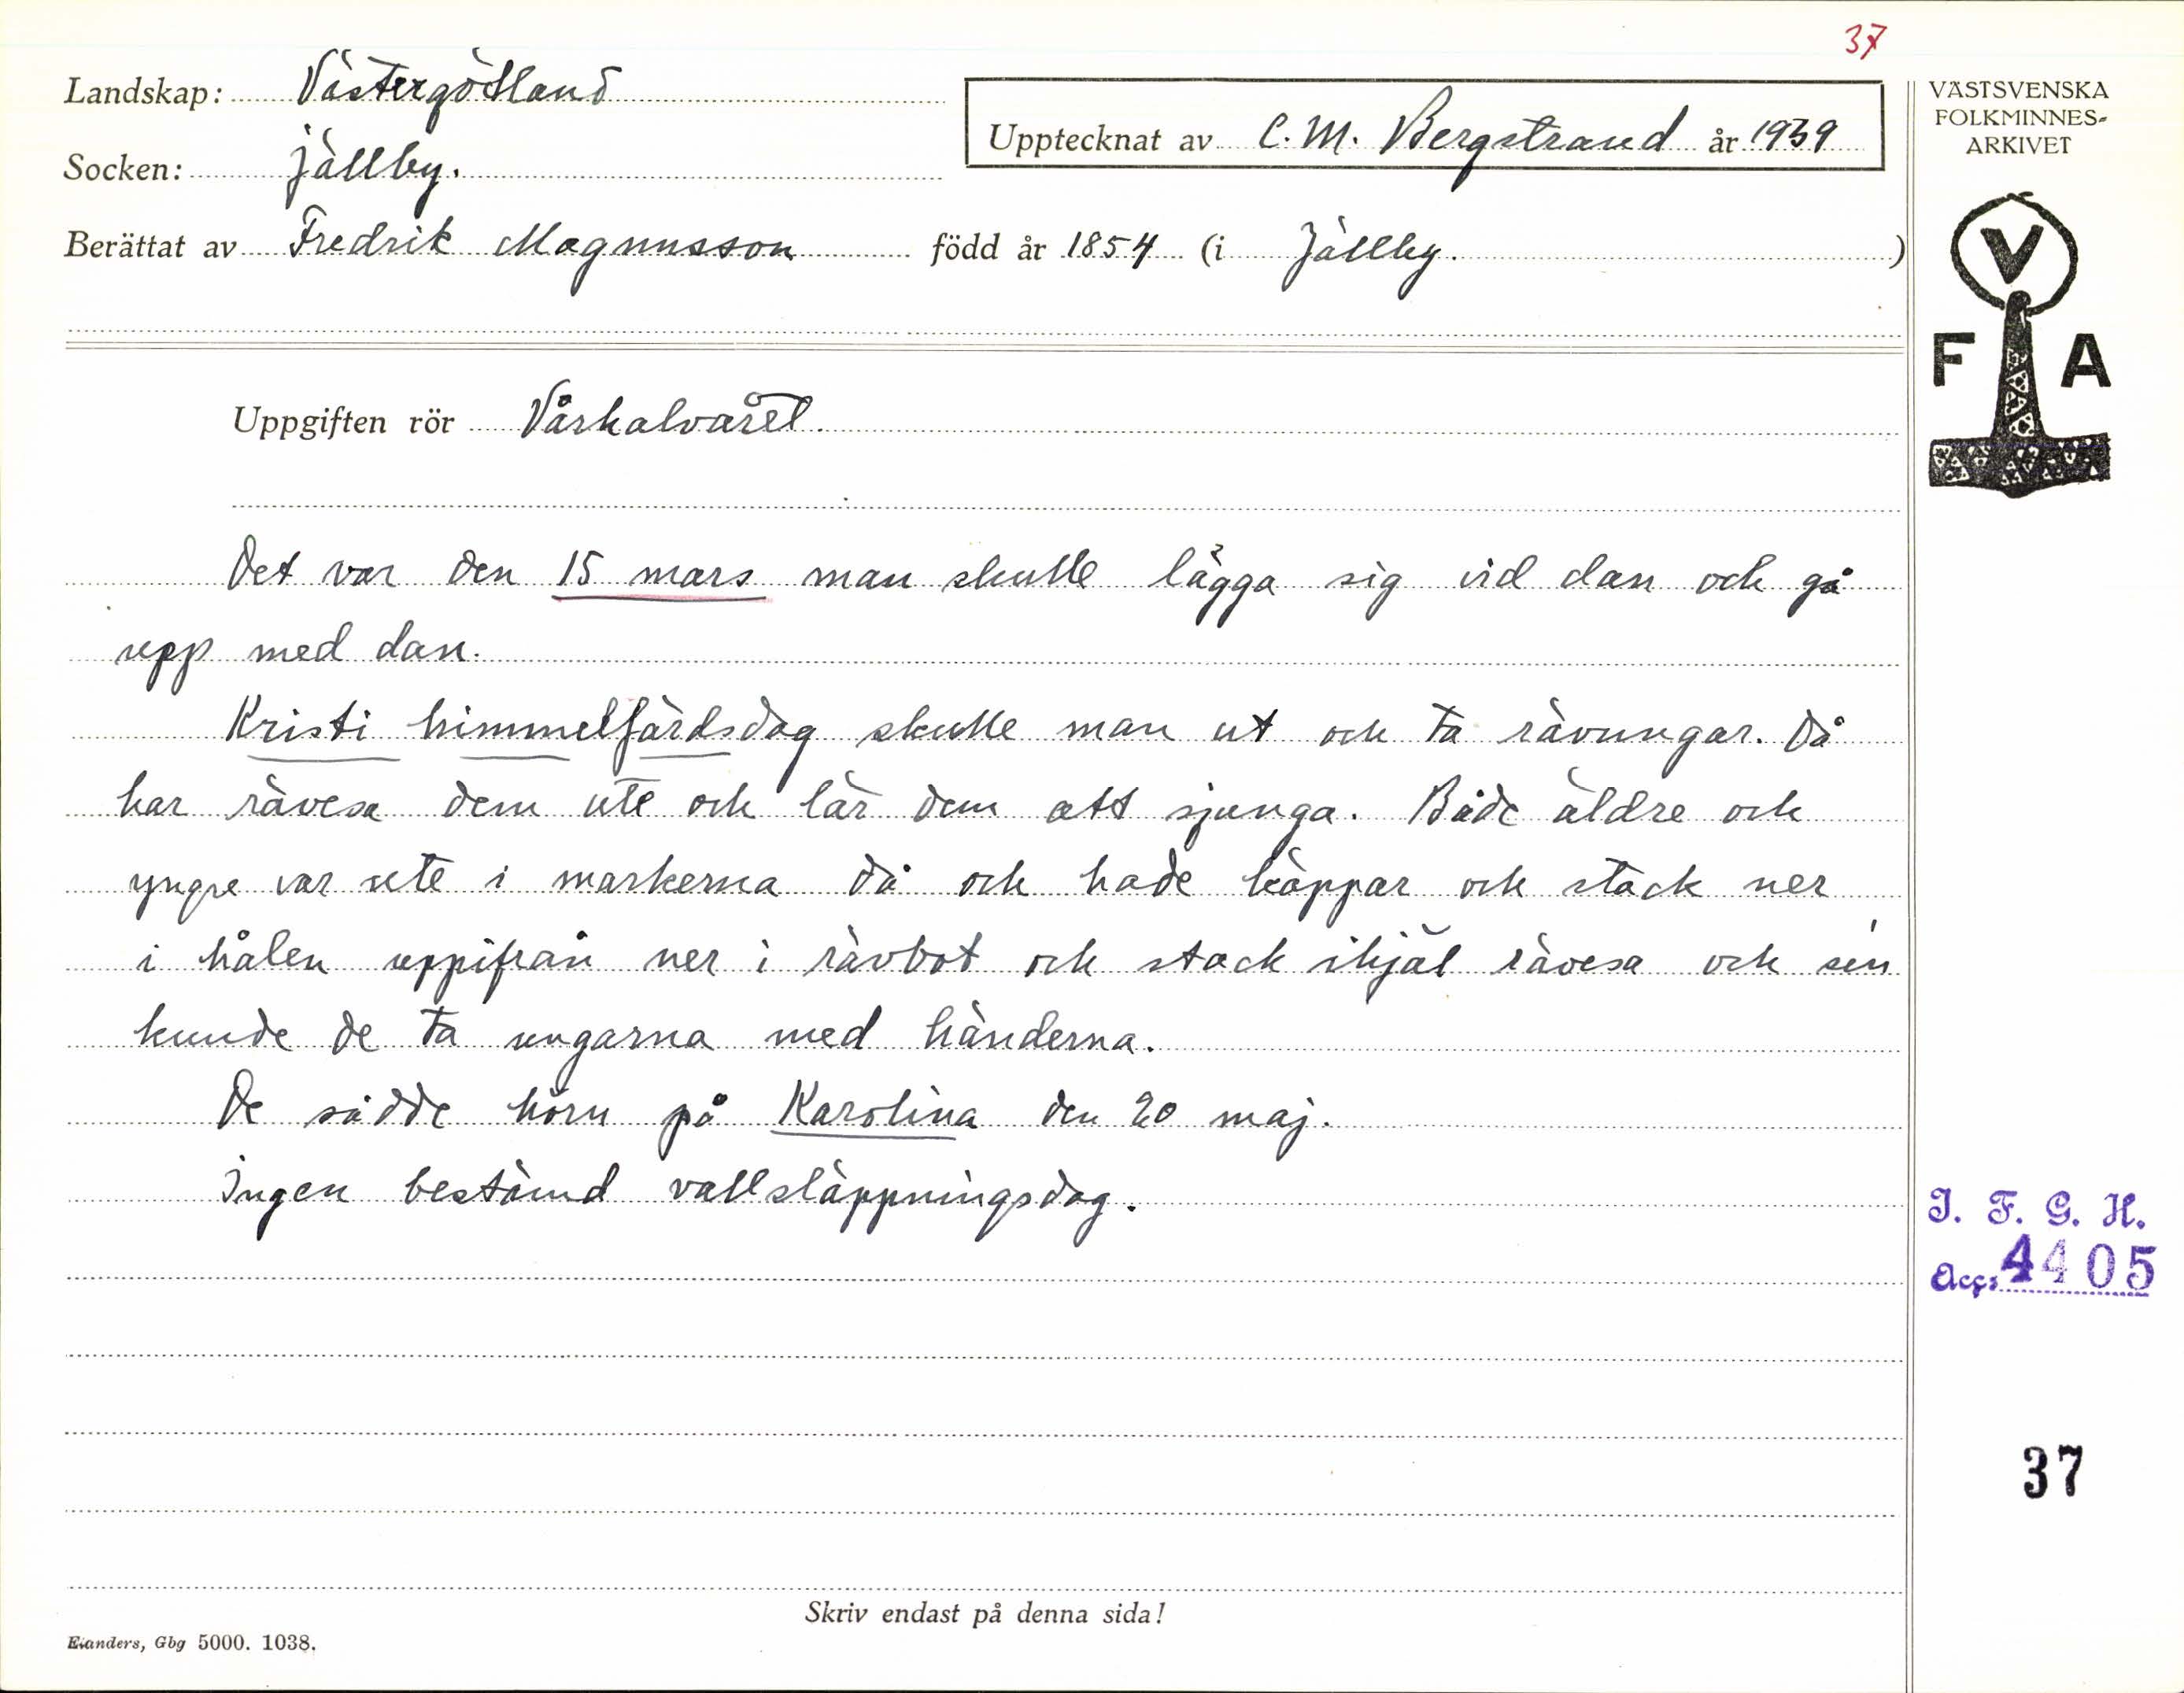 37
Landskap: Västergötland
Upptecknat av C. M. Bergstrand år 1939
Socken: Jällby.
Berättat av Fredrik Magnusson född år 1854 (i Jällby. )
VÄSTSVENSKA
FOLKMINNES-
ARKIVET
V
F A
Uppgiften rör Vårhalvåret.
Det var den 15 mars man skulle lägga sig vid dan och gå
upp med dan.
Kristi himmelfärdsdag skulle man ut och ta rävungar. Då
har rävesa dem ute och lär dem att sjunga. Både äldre och
yngre var ute i markerna då och hade käppar och stack ner
i hålen uppifrån ner i rävbot och stack ihjäl rävesa och sen
kunde de ta ungarna med händerna.
De sådde hörn på Karolina den 20 maj.
Ingen bestämd vallsläppningsdag.
I. F. G. H.
Acc: 4405
37
Skriv endast på denna sida!
Elanders, Gbg 5000. 1038.